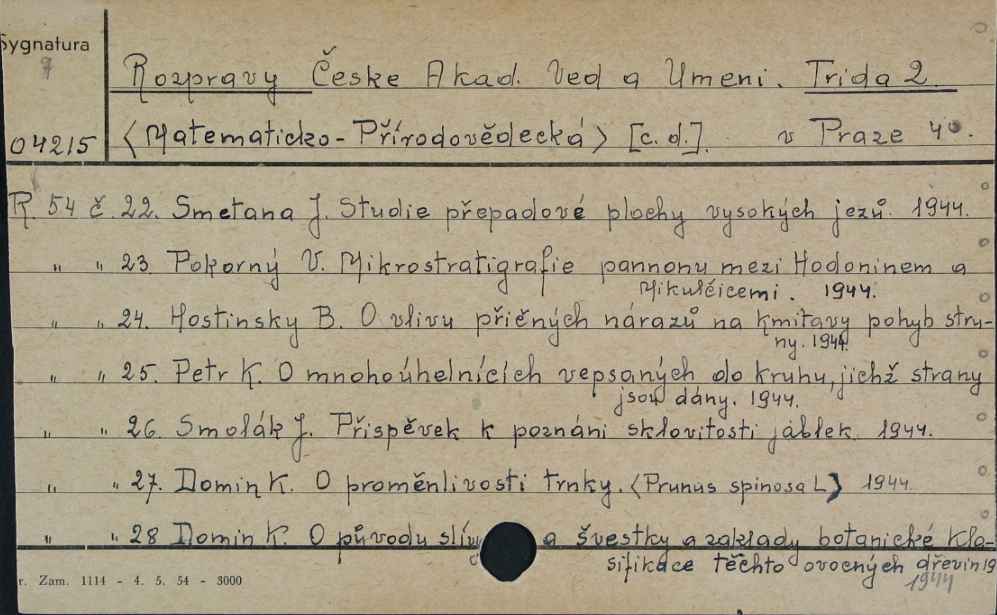 Sygnatura
7
Rozpravy České Akad. Ved a Umeni. Trida 2
04215 <Matematicko-Přírodovědecká> [c. d.]. v Praze 4°.
R. 54 č. 22. Smetana J. Studie přepadové plochy vysokých jezů. 1944.
" " 23 Pokorný V. Mikrostratigrafie pannonu mezi Hodoninem a
Mikulčicemi. 1944.
" " 24. Hostinsky B. O vlivu příčných nárazů na kmitavy pohyb stru-
ny. 1944.
" " 25. Petr K. O mnohoúhelnících vepsaných do kruhu, jichž strany
jsou dány. 1944.
" " 26. Smolák J. Příspěvek k poznáni sklovitosti jáblek 1944.
" " 27. Domin K. O proměnlivosti trnky. <Prunus spinosa L> 1944.
" " 28 Domin K. O původu slívy a švestky a zaklady botanické kla-
sifikace těchto ovocných dřevin 19
1944
r. Zam. 1114 - 4. 5. 54 - 3000